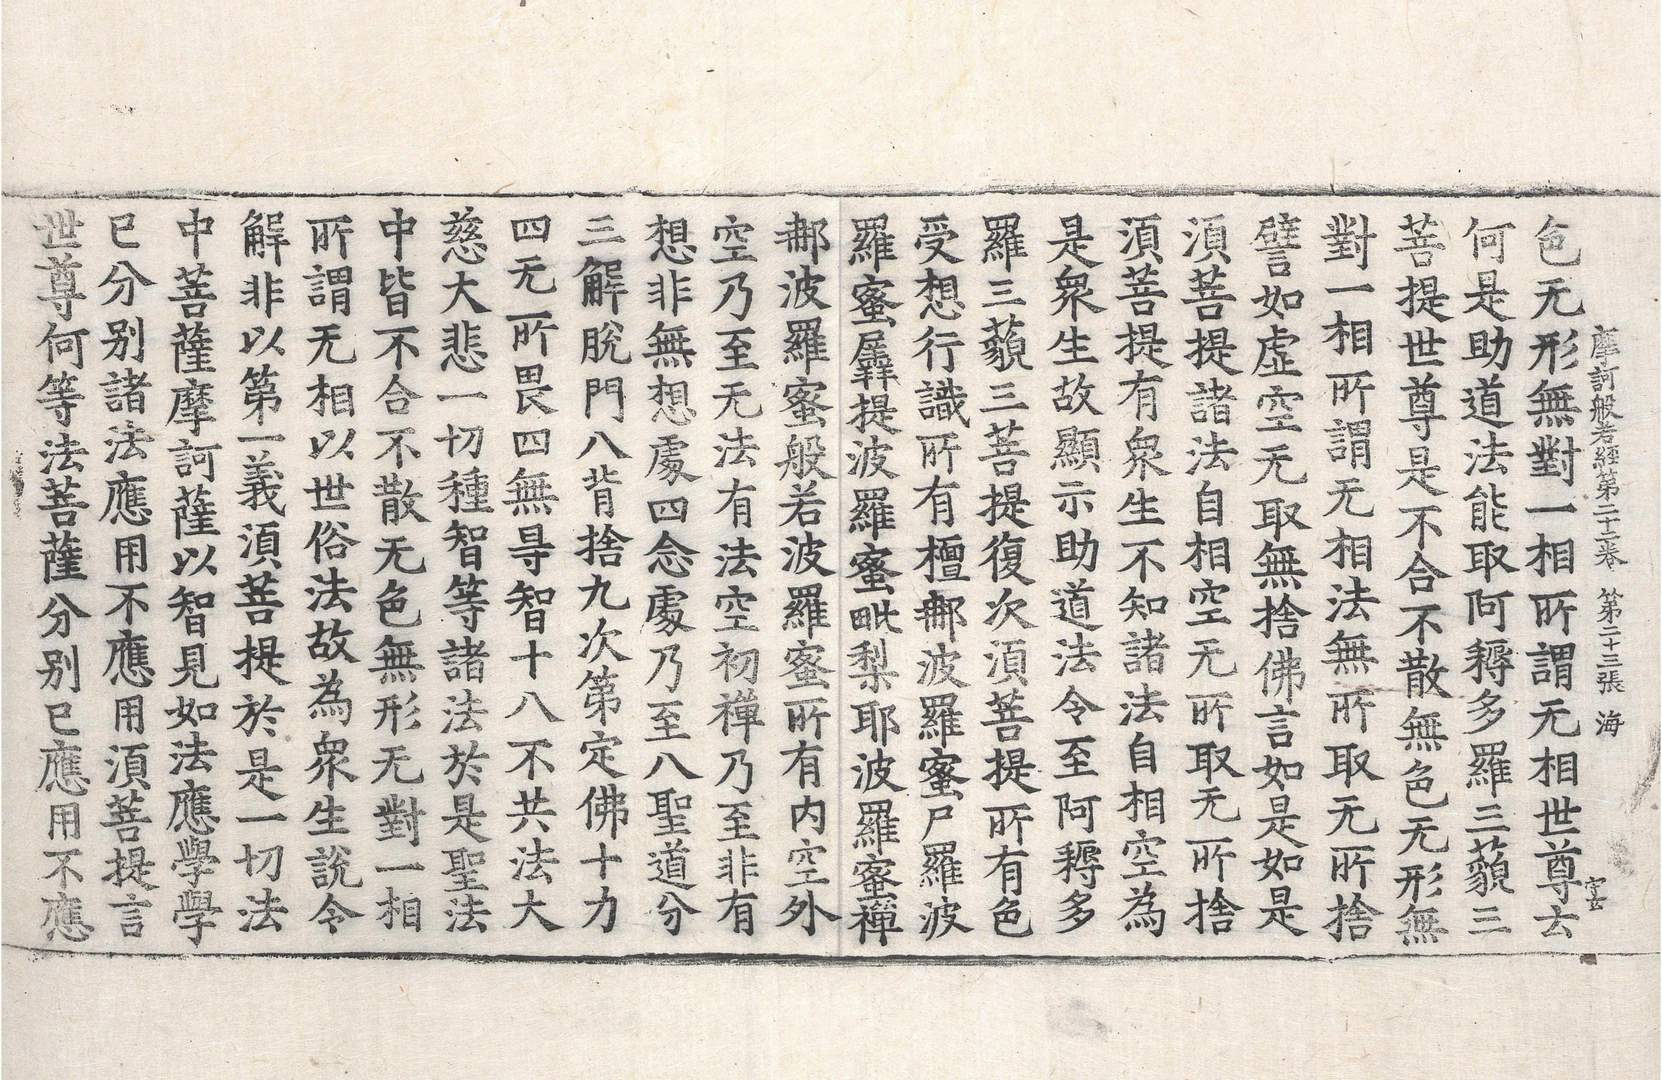 摩訶般若經第二十二卷 第二十三張 海
色无形無對一相所謂无相世尊云
何是助道法能取阿耨多羅三藐三
菩提世尊是不合不散無色无形無
對一相所謂无相法無所取无所捨
譬如虛空无取無捨佛言如是如是
須菩提諸法自相空无所取无所捨
須菩提有衆生不知諸法自相空為
是衆生故顯示助道法令至阿耨多
羅三藐三菩提復次須菩提所有色
受想行識所有檀那波羅蜜尸羅波
羅蜜羼提波羅蜜毗梨耶波羅蜜禪
那波羅蜜般若波羅蜜所有内空外
空乃至无法有法空初禪乃至非有
想非無想處四念處乃至八聖道分
三解脫門八背捨九次第定佛十力
四无所畏四無㝵智十八不共法大
慈大悲一切種智等諸法於是聖法
中皆不合不散无色無形无對一相
所謂无相以世俗法故為衆生說令
解非以第一義須菩提於是一切法
中菩薩摩訶薩以智見如法應學學
已分别諸法應用不應用須菩提言
世尊何等法菩薩分别已應用不應